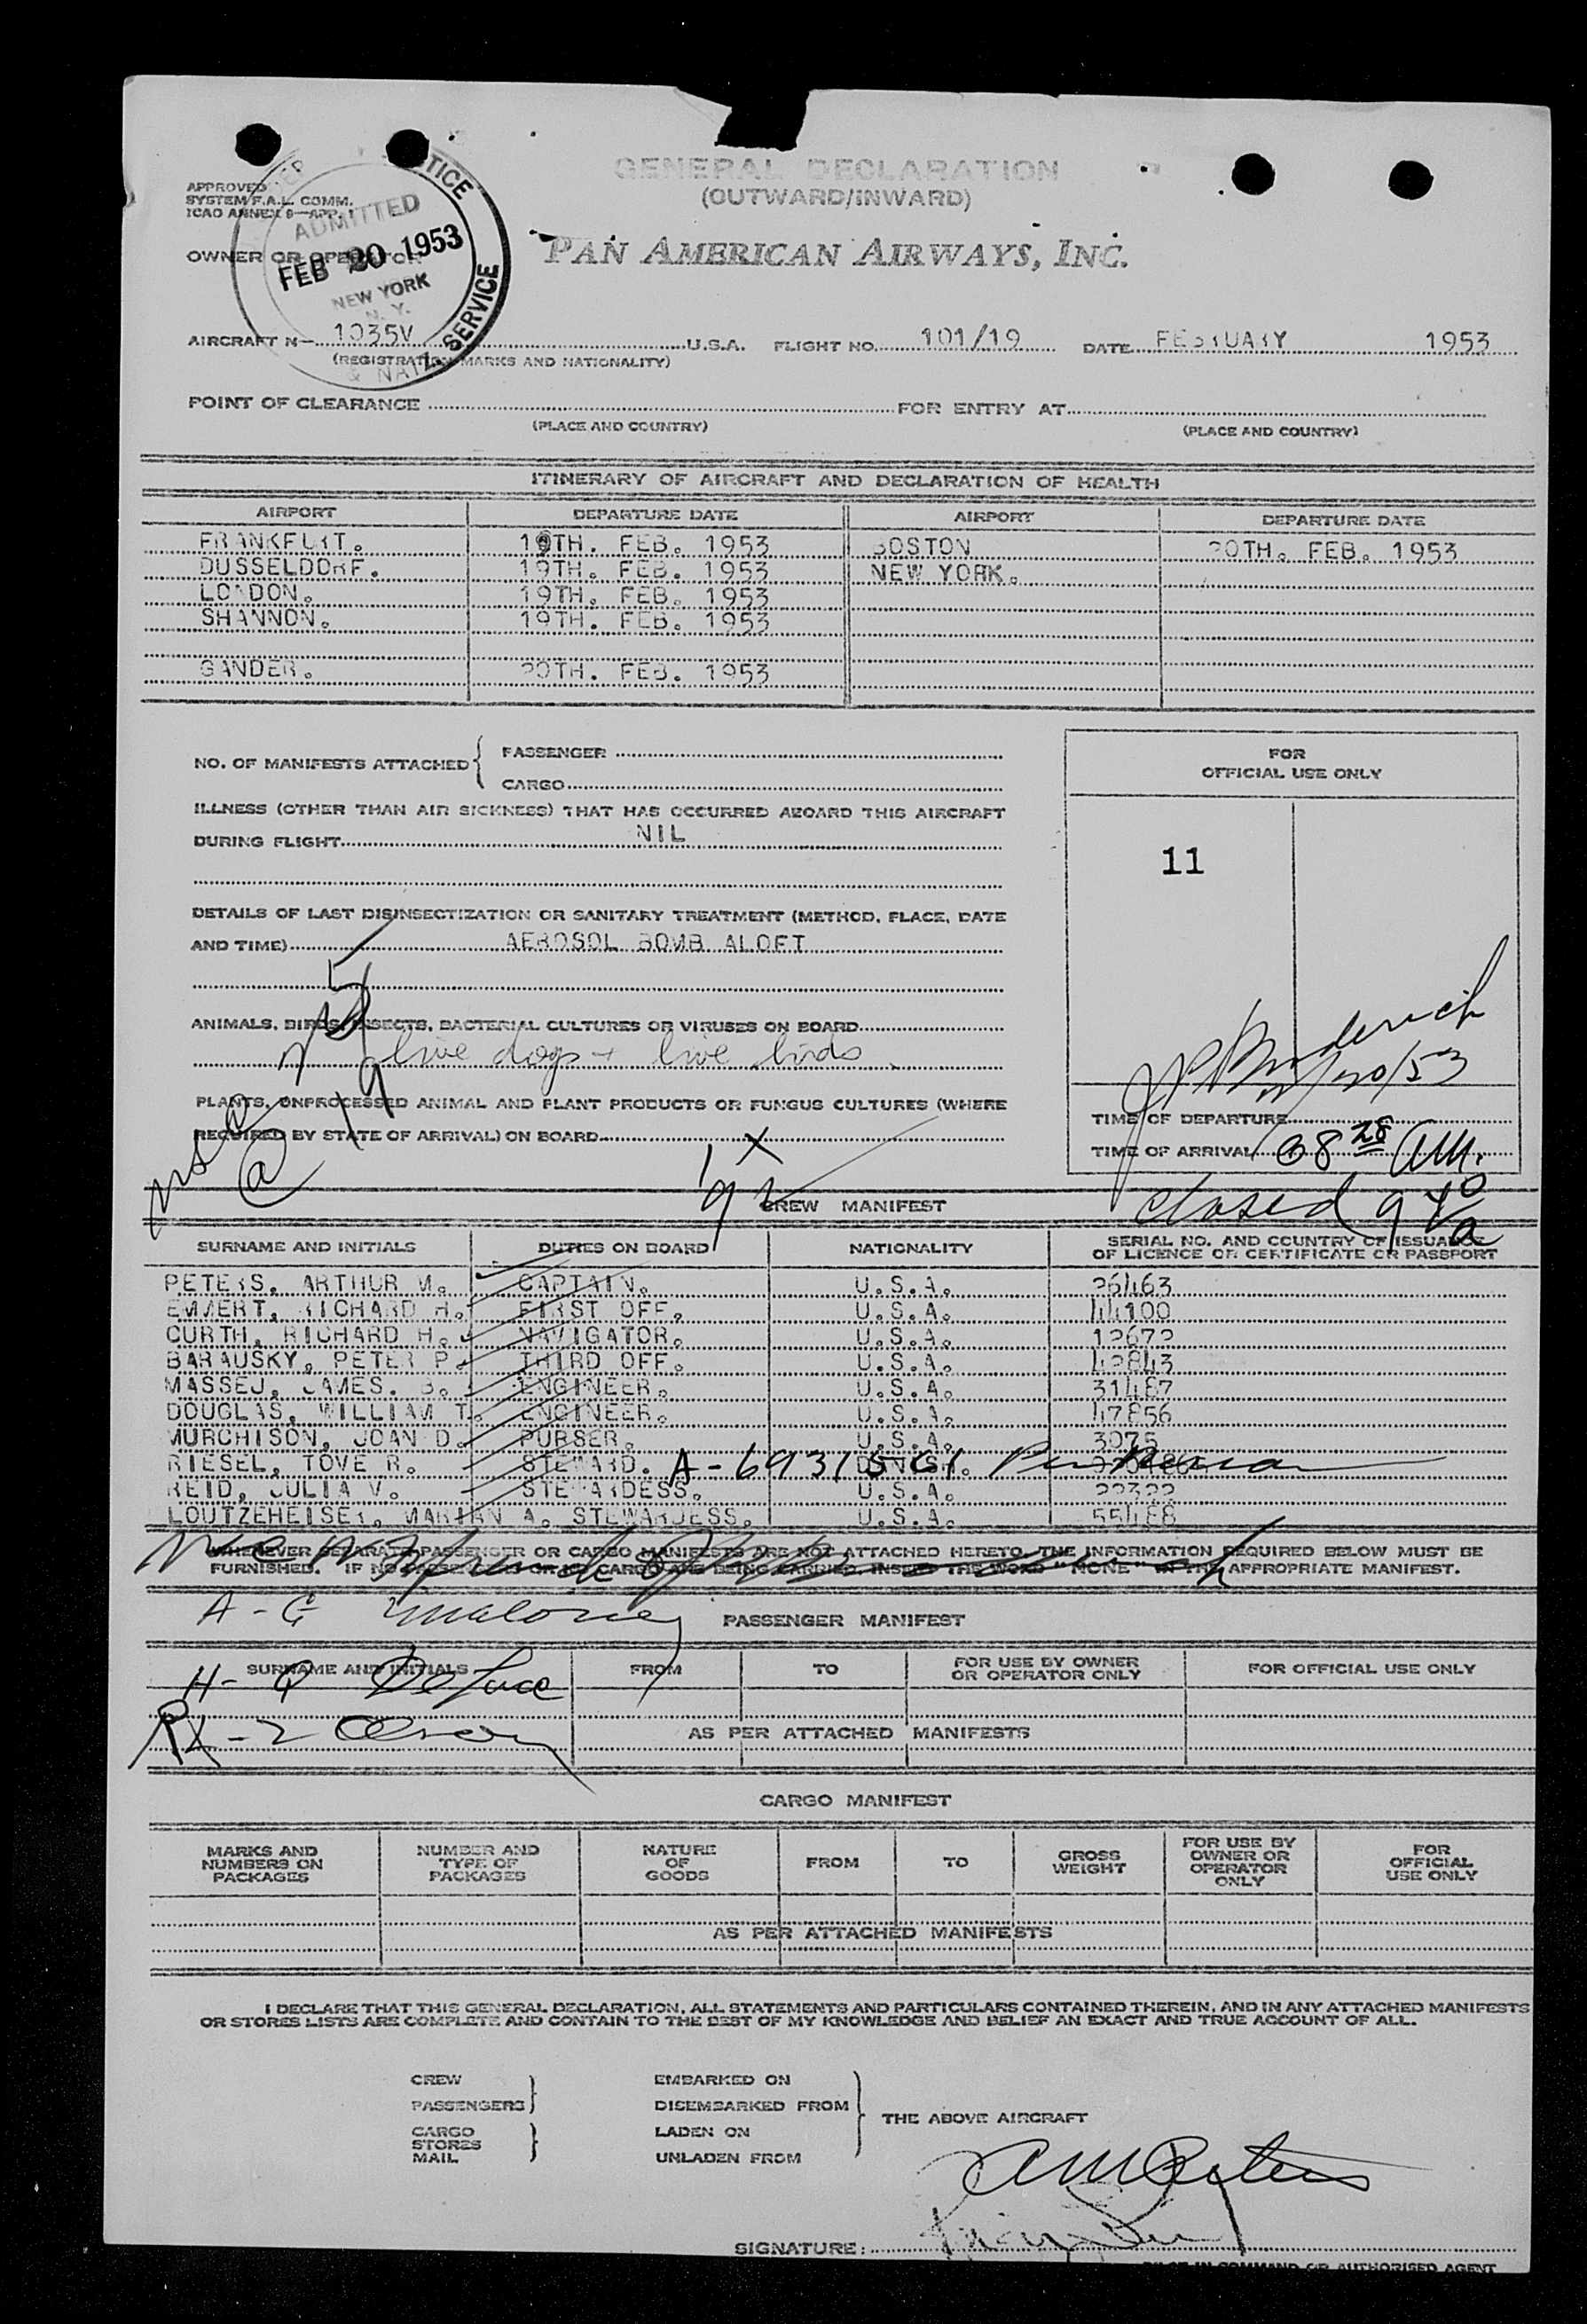 GENERAL DECLARATION
(OUTWARD/INWARD)
APPROVED
SYSTEM F.A.L. COMM.
ICAO ANNEX 9—APP. 1
ADMITTED
FEB 20 1953
NEW YORK
N. Y.
SERVICE
& NAT
OWNER OR OPERATOR
PAN AMERICAN AIRWAYS, INC.
AIRCRAFT N— 1035V U.S.A. FLIGHT NO. 101/19 DATE FEBRUARY 1953
(REGISTRATION MARKS AND NATIONALITY)
POINT OF CLEARANCE FOR ENTRY AT
(PLACE AND COUNTRY) (PLACE AND COUNTRY)
ITINERARY OF AIRCRAFT AND DECLARATION OF HEALTH
AIRPORT DEPARTURE DATE AIRPORT DEPARTURE DATE
FRANKFURT. 19TH. FEB. 1953 BOSTON 20TH. FEB. 1953
DUSSELDORF. 19TH. FEB. 1953 NEW YORK.
LONDON. 19TH. FEB. 1953
SHANNON. 19TH. FEB. 1953
GANDER. 20TH. FEB. 1953
NO. OF MANIFESTS ATTACHED { PASSENGER
CARGO
ILLNESS (OTHER THAN AIR SICKNESS) THAT HAS OCCURRED ABOARD THIS AIRCRAFT
DURING FLIGHT NIL
DETAILS OF LAST DISINSECTIZATION OR SANITARY TREATMENT (METHOD, PLACE, DATE
AND TIME) AEROSOL BOMB ALOFT
ANIMALS, BIRDS, INSECTS, BACTERIAL CULTURES OR VIRUSES ON BOARD
live dogs + live birds
PLANTS, UNPROCESSED ANIMAL AND PLANT PRODUCTS OR FUNGUS CULTURES (WHERE
REQUIRED BY STATE OF ARRIVAL) ON BOARD
FOR
OFFICIAL USE ONLY
11
TIME OF DEPARTURE
TIME OF ARRIVAL 08 28 AM.
closed 9 40 a
CREW MANIFEST
SURNAME AND INITIALS DUTIES ON BOARD NATIONALITY SERIAL NO. AND COUNTRY OF ISSUANCE
OF LICENCE OR CERTIFICATE OR PASSPORT
PETERS, ARTHUR M. CAPTAIN. U.S.A. 26463
EMMERT, RICHARD H. FIRST OFF. U.S.A. 44100
CURTH, RICHARD H. NAVIGATOR. U.S.A. 12672
BARAUSKY, PETER P. THIRD OFF. U.S.A. 42843
MASSEJ, JAMES. B. ENGINEER. U.S.A. 31487
DOUGLAS, WILLIAM T. ENGINEER. U.S.A. 47856
MURCHISON, JOAN D. PURSER. U.S.A. 3075
RIESEL, TOVE R. STEWARD. A-6931561 DANISH.
REID, JULIA V. STEWARDESS. U.S.A. 22322
LOUTZEHEISER, MARIAN A. STEWARDESS. U.S.A. 55488
WHENEVER SEPARATE PASSENGER OR CARGO MANIFESTS ARE NOT ATTACHED HERETO, THE INFORMATION REQUIRED BELOW MUST BE
FURNISHED. IF NO PASSENGERS OR NO CARGO ARE BEING CARRIED, INSERT THE WORD "NONE" IN THE APPROPRIATE MANIFEST.
A - G Maloney
PASSENGER MANIFEST
SURNAME AND INITIALS FROM TO FOR USE BY OWNER
OR OPERATOR ONLY FOR OFFICIAL USE ONLY
H - Q
AS PER ATTACHED MANIFESTS
CARGO MANIFEST
MARKS AND
NUMBERS ON
PACKAGES NUMBER AND
TYPE OF
PACKAGES NATURE
OF
GOODS FROM TO GROSS
WEIGHT FOR USE BY
OWNER OR
OPERATOR
ONLY FOR
OFFICIAL
USE ONLY
AS PER ATTACHED MANIFESTS
I DECLARE THAT THIS GENERAL DECLARATION, ALL STATEMENTS AND PARTICULARS CONTAINED THEREIN, AND IN ANY ATTACHED MANIFESTS
OR STORES LISTS ARE COMPLETE AND CONTAIN TO THE BEST OF MY KNOWLEDGE AND BELIEF AN EXACT AND TRUE ACCOUNT OF ALL.
CREW EMBARKED ON
PASSENGERS DISEMBARKED FROM
THE ABOVE AIRCRAFT
CARGO LADEN ON
STORES
MAIL UNLADEN FROM
AMPeters
SIGNATURE:
PILOT IN COMMAND OR AUTHORISED AGENT